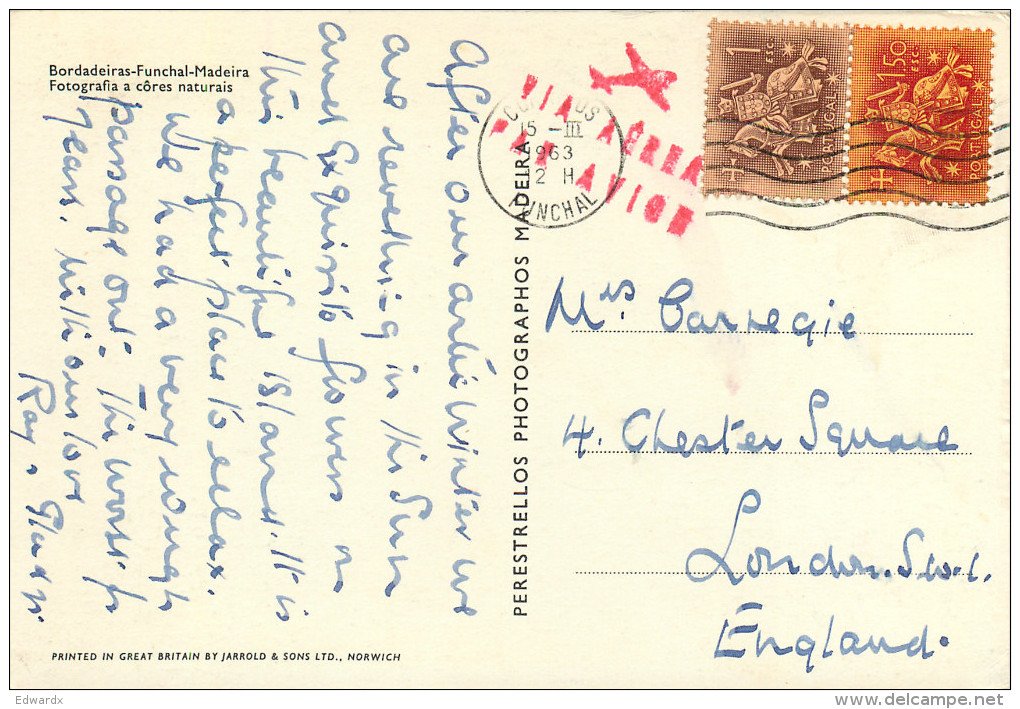 Bordadeiras-Funchal-Madeira
Fotografia a côres naturais
After our arctic winter we
are revelling in the Sun
and exquisite flowers on
this beautiful Island. It is
a perfect place to relax.
We had a very rough
passage out. The worst for
years. With our love
Ray & Gladys.
PRINTED IN GREAT BRITAIN BY JARROLD & SONS LTD., NORWICH
PERESTRELLOS PHOTOGRAPHOS MADEIRA
VIA AÉREA
PAR AVION
15 -III
1963
12 H
FUNCHAL
1 ESC.
PORTUGAL
1$50 ESC.
PORTUGAL
Mrs Carnegie
4. Chester Square
London. S.W.1.
England.
Edwardx
delcampe.net